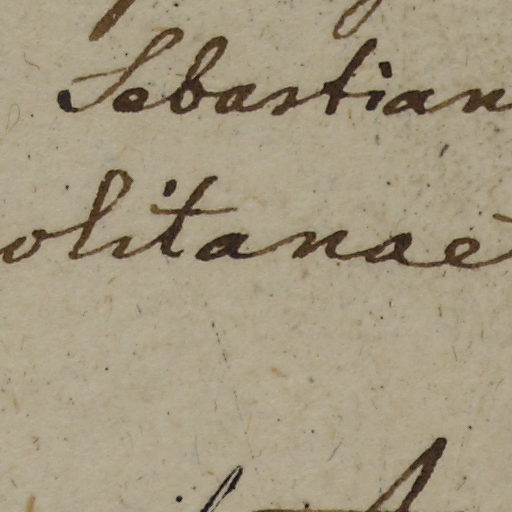 Sebastian
olitanae